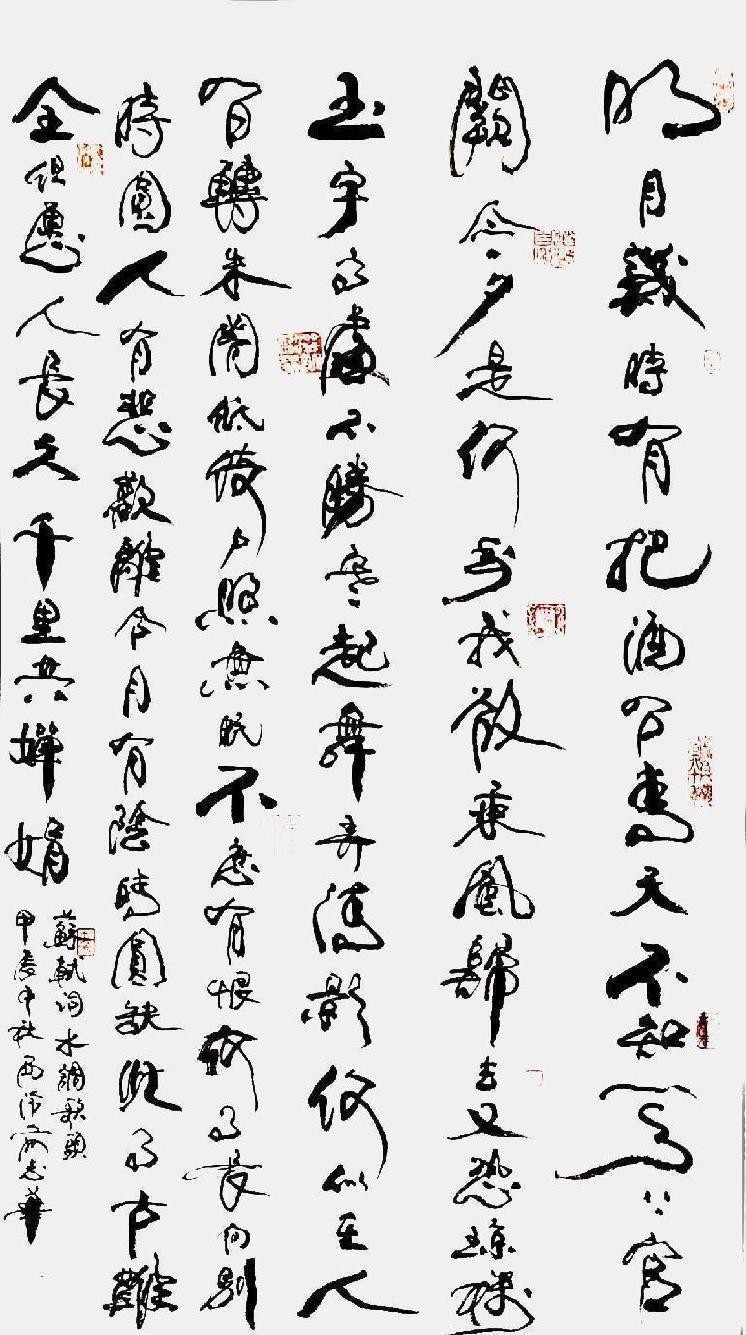 明月幾時有把酒問青天不知天上宮
闕今夕是何年我欲乘風歸去又恐瓊樓
玉宇高處不勝寒起舞弄清影何似在人
間轉朱閣低綺戶照無眠不應有恨何事長向別
時圓人有悲歡離合月有陰晴圓缺此事古難
全但願人長久千里共嬋娟
蘇軾詞水調歌頭
甲辰中秋西志華